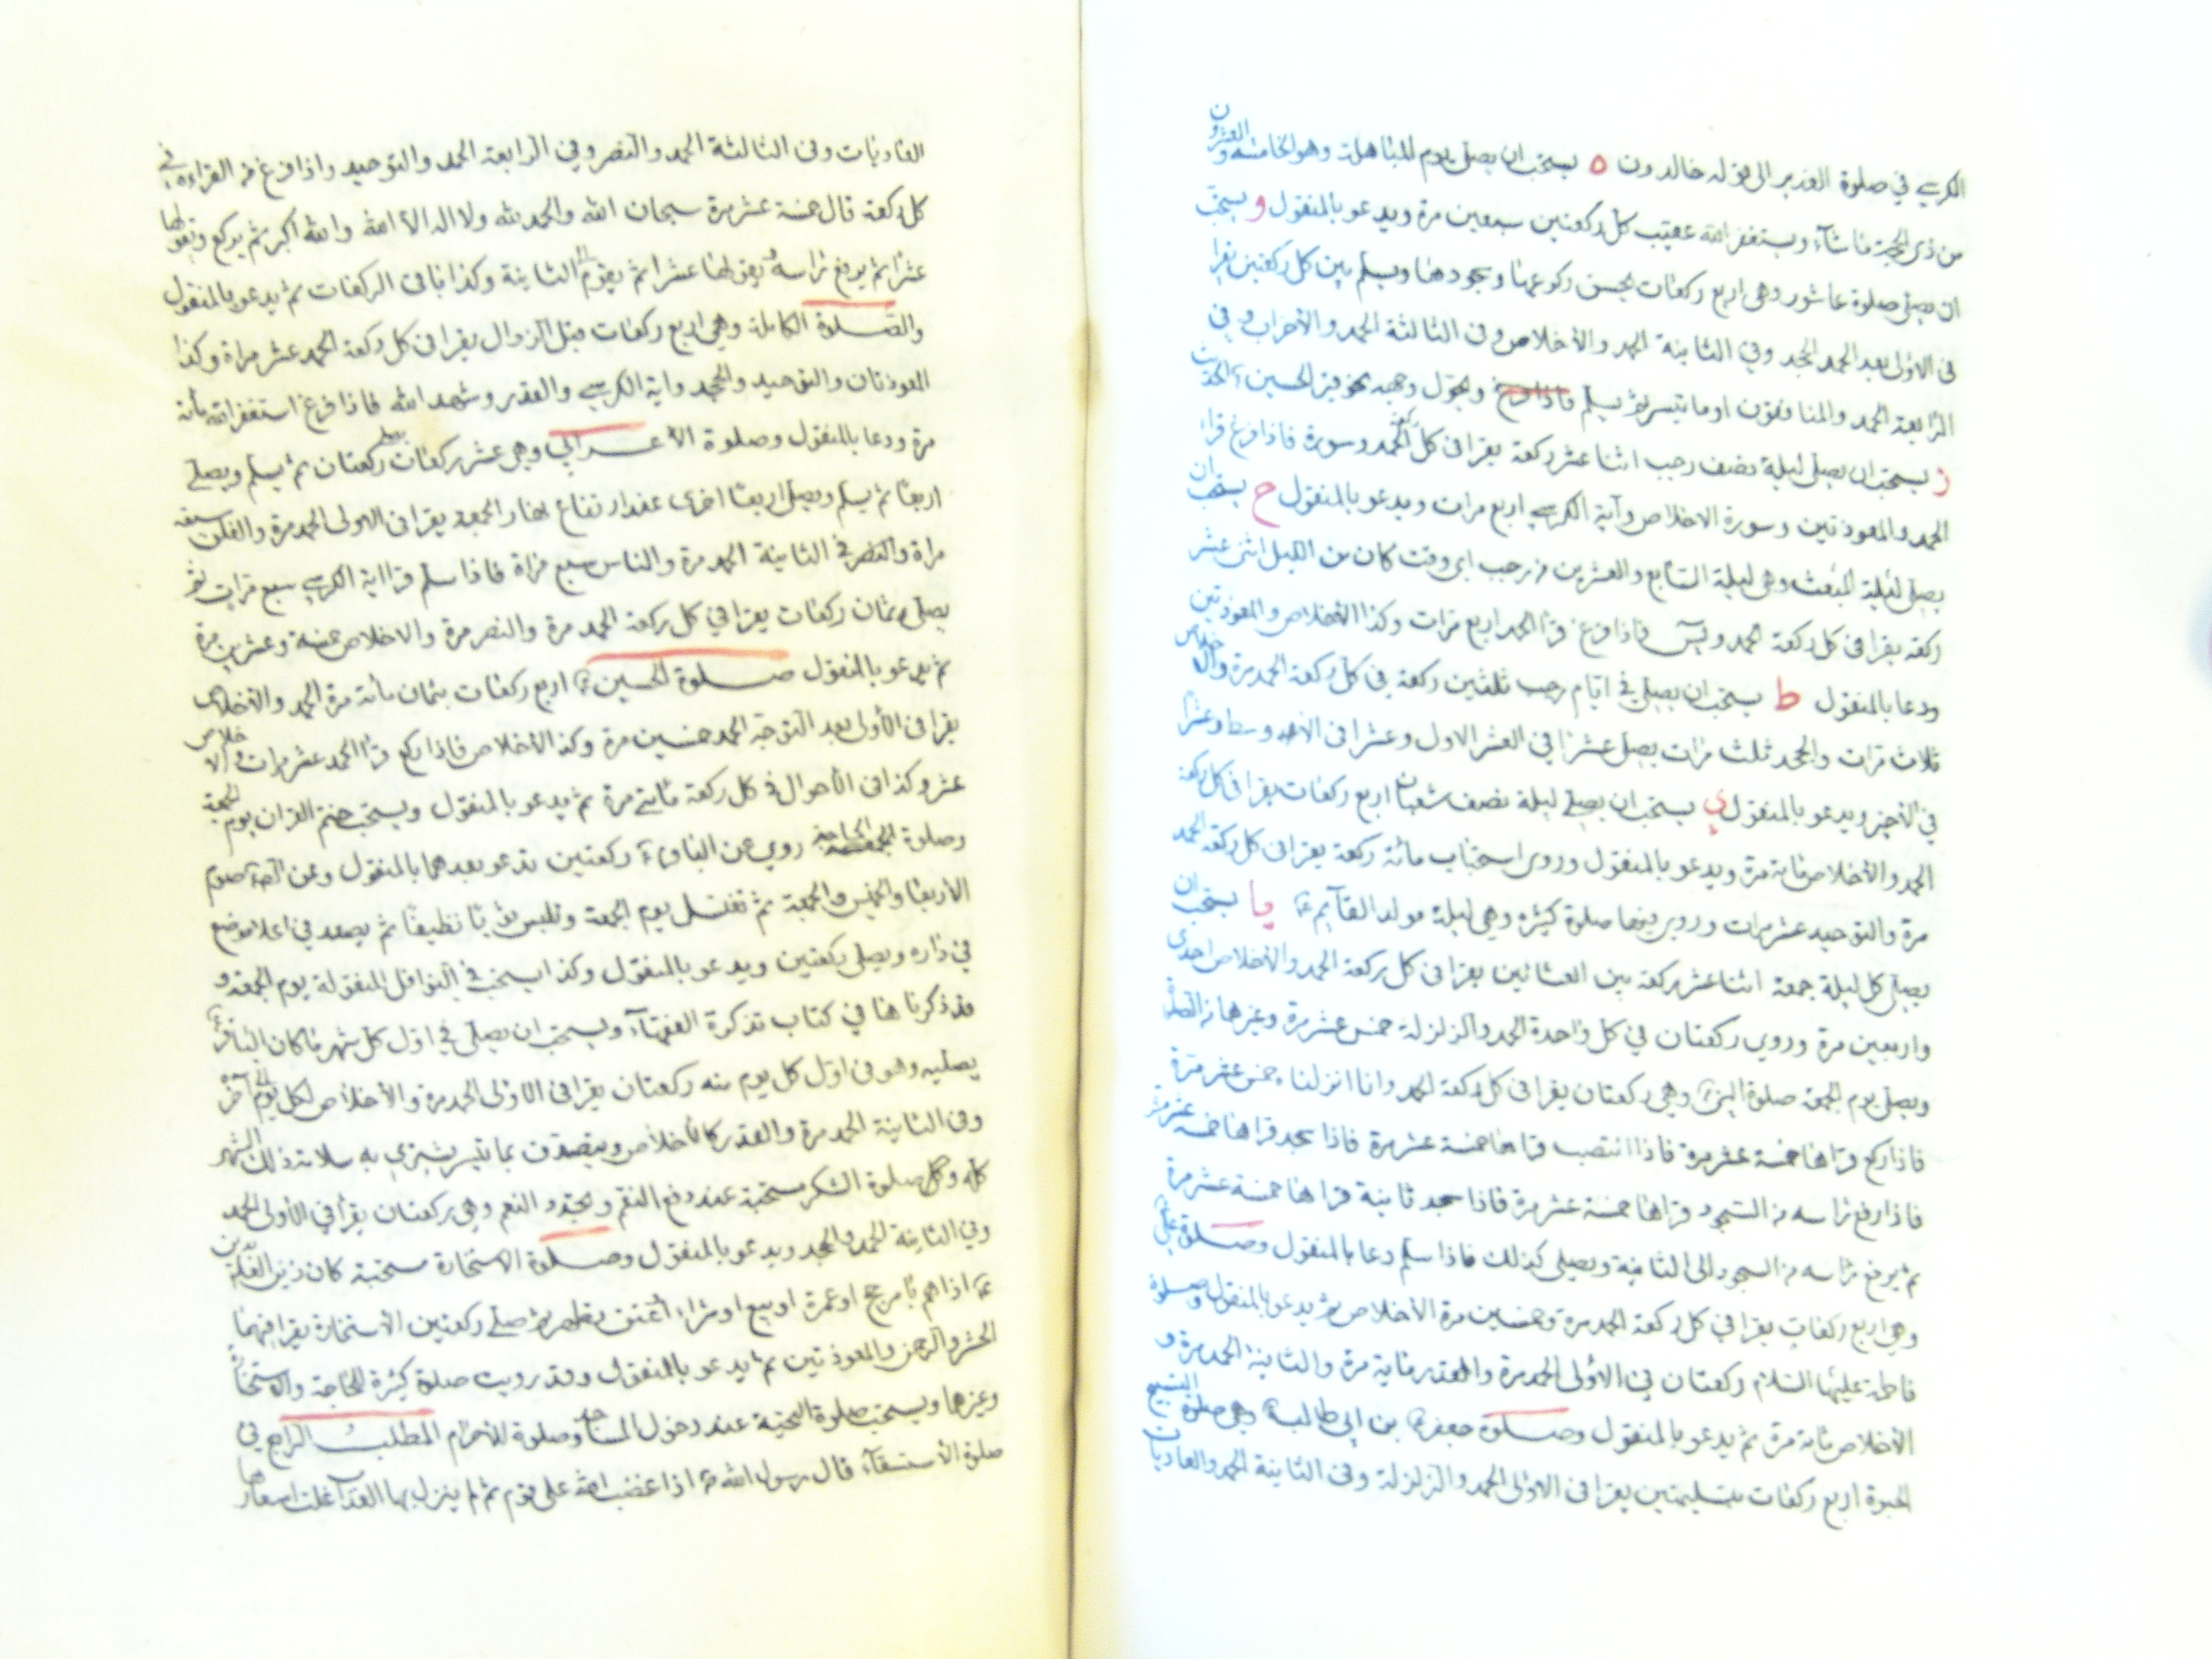 الكرسي في صلوة الغدير الى قوله خالدون ه يستحب ان يصلي يوم المباهلة وهو الخامسة والعشرون
من ذي الحجة ما شاء ويستغفر الله عقيب كل ركعتين سبعين مرة ويدعو بالمنقول و يستحب
ان يصلي صلوة عاشور وهي اربع ركعات يحسن ركوعها وسجودها ويسلم بين كل ركعتين يقرا
في الاولى بعد الحمد الجحد وفي الثانية الحمد والأخلاص وفي الثالثة الحمد والأحزاب وفي
الرابعة الحمد والمنافقون او ما تيسر ثم يسلم ويحول وجهه نحو قبر الحسين ع
ز يستحب ان يصلي ليلة نصف رجب اثنا عشر ركعة يقرا في كل ركعة الحمد وسورة فاذا فرغ قرا
الحمد والمعوذتين وسورة الاخلاص وآية الكرسي اربع مرات ويدعو بالمنقول ح يستحب ان
يصلي ليلة المبعث وهي ليلة السابع والعشرين من رجب اي وقت كان من الليل اثنى عشر
ركعة يقرا في كل ركعة الحمد ويس فاذا فرغ قرا الحمد اربع مرات وكذا الأخلاص والمعوذتين
ودعا بالمنقول ط يستحب ان يصلي في ايام رجب ثلثين ركعة في كل ركعة الحمد مرة والاخلاص
ثلاث مرات والجحد ثلث مرات يصلي عشرا في العشر الاول وعشرا في الاوسط وعشرا
في الأخير ويدعو بالمنقول ي يستحب ان يصلي ليلة نصف شعبان اربع ركعات يقرا في كل ركعة
الحمد والأخلاص مائة مرة ويدعو بالمنقول وروى استحباب مائة ركعة يقرا في كل ركعة الحمد
مرة والتوحيد عشر مرات وروي فيها صلوة كثيرة وهي ليلة مولد القآيم ع يا يستحب ان
يصلي كل ليلة جمعة اثنا عشر ركعة بين العشائين يقرا في كل ركعة الحمد والأخلاص احدى
واربعين مرة وروي ركعتان في كل واحدة الحمد والزلزلة خمس عشر مرة وغيرها من الصلوة
ويصلي يوم الجمعة صلوة النبي ص وهي ركعتان يقرا في كل ركعة الحمد وانا انزلناه خمس عشر مرة
فاذا ركع قراها خمسة عشر مرة فاذا انتصب قراها خمسة عشر مرة فاذا سجد قراها خمسة عشر مرة
فاذا رفع راسه من السجود قراها خمسة عشر مرة فاذا سجد ثانية قراها خمسة عشر مرة
ثم يرفع راسه من السجود الى الثانية ويصلي كذلك فاذا سلم دعا بالمنقول وصلوة علي ع
وهي اربع ركعات يقرا في كل ركعة الحمد مرة وخمسين مرة الأخلاص ثم يدعو بالمنقول وصلوة
فاطمة عليها السلام ركعتان في الاولى الحمد مرة والقدر مائة مرة والثانية الحمد مرة و
الأخلاص مائة مرة ثم يدعو بالمنقول وصلوة جعفر ع بن ابي طالب ع وهي صلوة التسبيح
الحبوة اربع ركعات بتسليمتين يقرا في الاولى الحمد والزلزلة وفي الثانية الحمد والعاديات
العاديات وفي الثالثة الحمد والنصر وفي الرابعة الحمد والتوحيد واذا فرغ من القراءة في
كل ركعة قال خمسة عشر مرة سبحان الله والحمد لله ولا اله الا الله والله اكبر ثم يركع ويقولها
عشرا ثم يرفع راسه يقولها عشرا ثم يقوم الى الثانية وكذا باقي الركعات ثم يدعو بالمنقول
والصلوة الكاملة وهي اربع ركعات قبل الزوال يقرا في كل ركعة الحمد عشر مراة وكذا
المعوذتان والتوحيد والجحد واية الكرسي والقدر وشهد الله فاذا فرغ استغفر الله مائة
مرة ودعا بالمنقول وصلوة الأعرابي وهي عشر ركعات يصلي ركعتان ثم يسلم ويصلي
اربعا ثم يسلم ويصلي اربعا اخرى عند ارتفاع نهار الجمعة يقرا في الاولى الحمد مرة والفلق سبعة
مراة والنصر في الثانية الحمد مرة والناس سبع مراة فاذا سلم قرا اية الكرسي سبع مرات ثم
يصلي ثمان ركعات يقرا في كل ركعة الحمد مرة والنصر مرة والاخلاص خمسة وعشرين مرة
ثم يدعو بالمنقول صلوة الحسين ع اربع ركعات بثمان مائة مرة الحمد والأخلاص
يقرا في الأولى بعد التوجه الحمد خمسين مرة وكذا الأخلاص فاذا ركع قرا الحمد عشر مرات والاخلاص
عشر وكذا في الأحوال في كل ركعة مائتي مرة ثم يدعو بالمنقول ويستحب ختم القران يوم الجمعة
وصلوة الحاجة روي عن الباقر ع ركعتين تدعو بعدهما بالمنقول وعن الصادق صوم
الأربعا والخميس والجمعة ثم تغتسل يوم الجمعة وتلبس ثوبا نظيفا ثم يصعد في اعلا موضع
في داره ويصلي ركعتين ويدعو بالمنقول وكذا يستحب في النوافل المنقولة يوم الجمعة و
قد ذكرنا هنا في كتاب تذكرة الفقهآء ويستحب ان يصلي في اول كل شهر ما كان الباقر ع
يصليه وهو في اول كل يوم منه ركعتان يقرا في الاولى الحمد مرة والأخلاص لكل يوم الى آخره
وفي الثانية الحمد مرة والقدر كالأخلاص ويتصدق بما تيسر يشتري به سلامة ذلك الشهر
كله وصلوة الشكر مستحبة عند دفع النقم وتجدد النعم وهي ركعتان يقرأ في الأولى الحمد
وفي الثانية الحمد والجحد ويدعو بالمنقول وصلوة الاستخارة مستحبة كان زين العابدين
ع اذا هم بامر حج او عمرة او بيع او شراء او عتق تطهر ثم صلى ركعتين الأستخارة يقرا فيهما
الحشر والرحمن والمعوذتين ثم يدعو بالمنقول وقد رويت صلوة كثيرة للحاجة والاستخارة
وغيرها ويستحب صلوة التحية عند دخول المساجد وصلوة للاحرام المطلب الرابع في
صلوة الأستسقآء قال رسول الله ص اذا غضب الله على قوم ثم لم ينزل بها العذاب غلت اسعارها